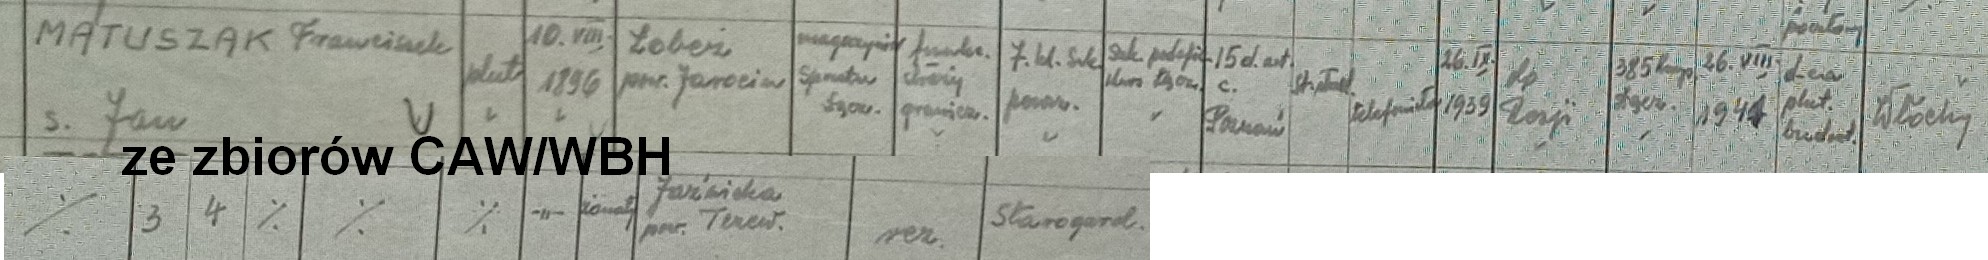 MATUSZAK Franciszek
s. Jan
plut.
10. VIII.
1896
Łobeż
pow. Jarocin
magazynier
sprzętu
łącz.
funkc.
straży
granicz.
7. kl. szk
powsz.
szk. podofic.
kurs łącz.
15 d. art.
c.
Poznań
telefonista
26. IX.
1939
do
Rosji
385 komp.
łącz.
26. VIII.
1941
d-ca
plut.
budowl.
Włochy
ze zbiorów CAW/WBH
⁒ 3 4 ⁒ ⁒ ⁒ -"- żonaty
Jaźwicka
pow.
rez.
Starogard.